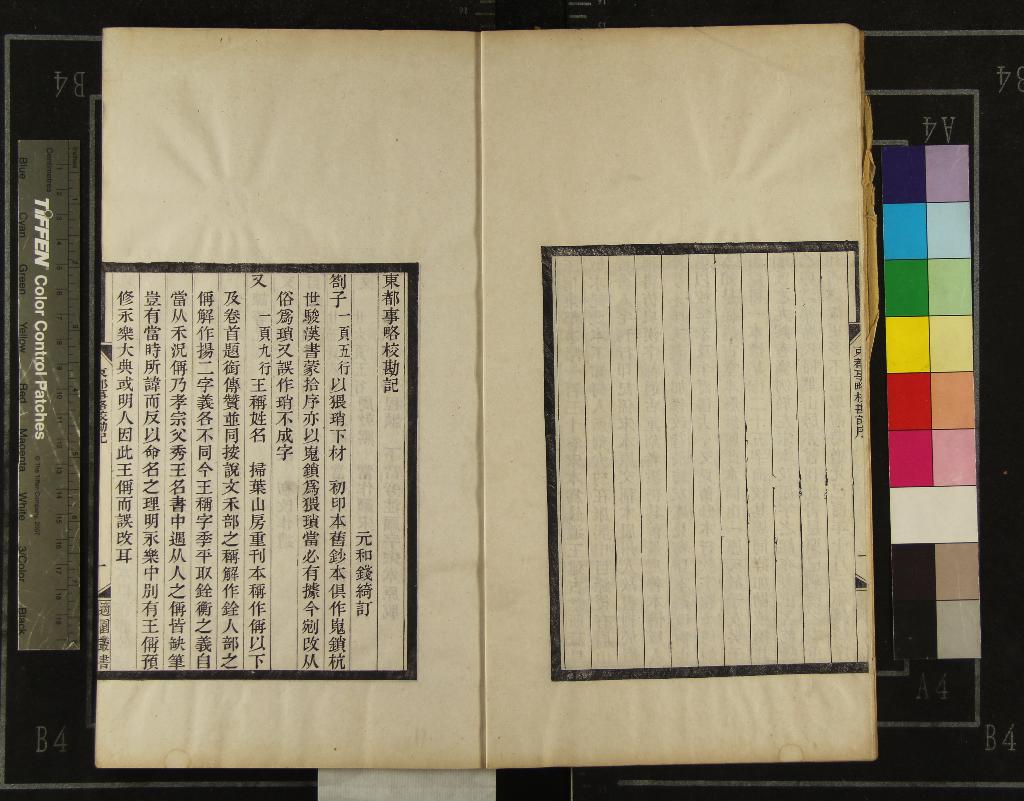 東都事略校勘記
元和錢綺訂
劄子一頁五行以猥瑣下材 初印本舊鈔本俱作嵬鎖杭
世駿漢書蒙拾序亦以嵬鎖為猥瑣當必有據今剜改从
俗為瑣又誤作琑不成字
又一頁九行王稱姓名 掃葉山房重刊本稱作偁以下
及卷首題銜傳贊並同按說文禾部之稱解作銓人部之
偁解作揚二字義各不同今王稱字季平取銓衡之義自
當从禾況偁乃孝宗父秀王名書中遇从人之偁皆缺筆
豈有當時所諱而反以命名之理明永樂中別有王偁預
修永樂大典或明人因此王偁而誤改耳
東都事略校勘記
一
適園叢書
B4
A4
TIFFEN Color Control Patches
© The Tiffen Company, 2007
Centimetres
Blue
Cyan
Green
Yellow
Red
Magenta
White
3/Color
Black
B4
A4
B4
B4